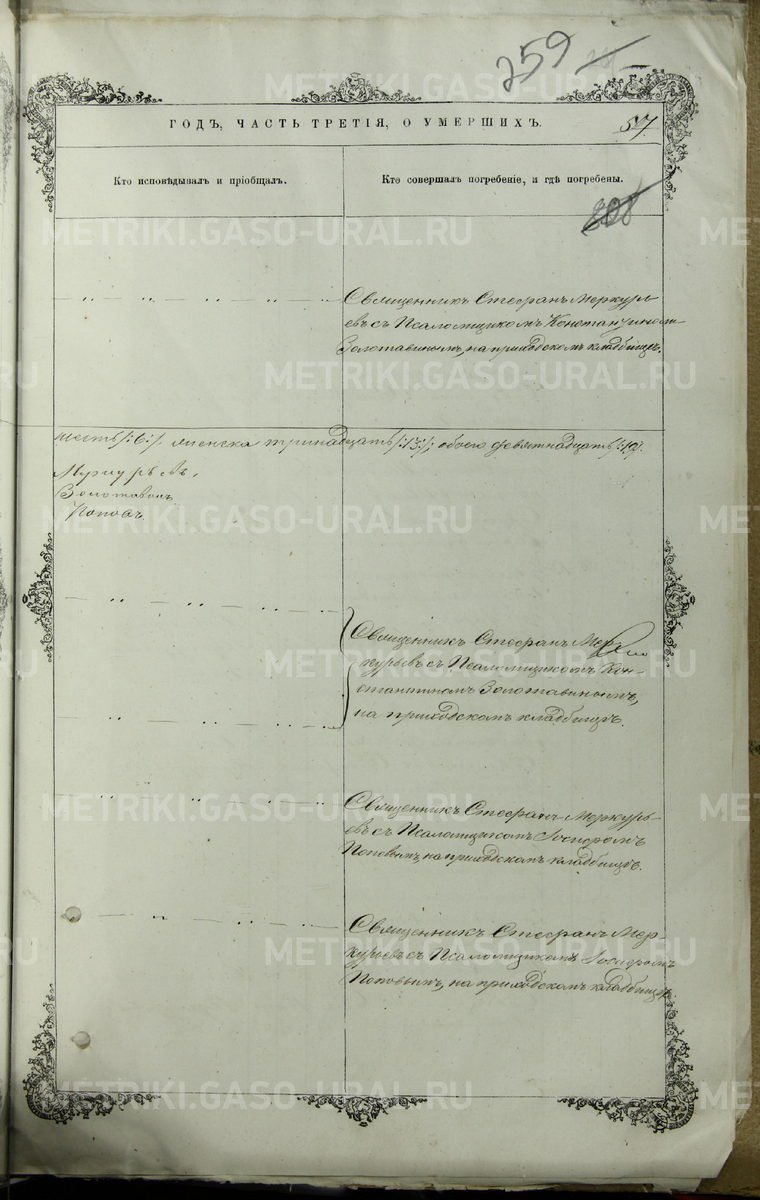 259
ГОДЪ, ЧАСТЬ ТРЕТІЯ, О УМЕРШИХЪ.
57.
Кто исповѣдывалъ и пріобщалъ.
Кто совершалъ погребеніе, и гдѣ погребены.
208
Священникъ Стефанъ Меркурь-
евъ съ Псаломщикомъ Константиномъ
Золотавинымъ, на приходскомъ кладбищѣ.
шесть /:6:/. женска тринадцать /:13:/, обоего девятнадцать /:19:/.
Меркурьевъ.
Золотавинъ
Поповъ.
Священникъ Стефанъ Мер-
курьевъ съ Псаломщикомъ Кон-
стантиномъ Золотавинымъ,
на приходскомъ кладбищѣ.
Священникъ Стефанъ Меркурь-
евъ съ Псаломщикомъ Іосифомъ
Поповымъ, на приходскомъ кладбищѣ.
Священникъ Стефанъ Мер-
курьевъ съ Псаломщикомъ Іосифомъ
Поповымъ, на приходскомъ кладбищѣ.
METRIKI.GASO-URAL.RU